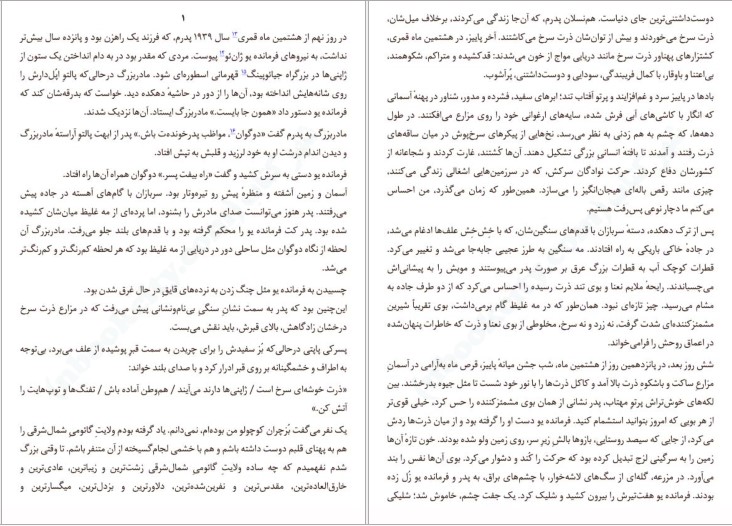 ۱
در روز نهم از هشتمین ماه قمری۱۳ سال ۱۹۳۹ پدرم، که فرزند یک راهزن بود و پانزده سال بیش‌تر
نداشت، به نیروهای فرمانده یو ژان‌ئو پیوست. مردی که مقدر بود در به دام انداختن یک ستون از
ژاپنی‌ها در بزرگراه جیائوپینگ۱۵ قهرمانی اسطوره‌ای شود. مادربزرگ درحالی‌که پالتو اَپُل‌دارش را
روی شانه‌هایش انداخته بود، آن‌ها را از دور در حاشیهٔ دهکده دید. خواست که بدرقه‌شان کند که
فرمانده یو دستور داد «همون جا بایست.» مادربزرگ ایستاد. آن‌ها نزدیک شدند.
مادربزرگ به پدرم گفت «دوگوان۱۶، مواظب پدرخونده‌ت باش.» پدر از ابهت پالتو آراستهٔ مادربزرگ
و دیدن اندام درشت او به خود لرزید و قلبش به تپش افتاد.
فرمانده یو دستی به سرش کشید و گفت «راه بیفت پسر.» دوگوان همراه آن‌ها راه افتاد.
آسمان و زمین آشفته و منظرهٔ پیشِ رو تیره‌وتار بود. سربازان با گام‌های آهسته در جاده پیش
می‌رفتند. پدر هنوز می‌توانست صدای مادرش را بشنود، اما پرده‌ای از مه غلیظ میان‌شان کشیده
شده بود. پدر کت فرمانده یو را محکم گرفته بود و با قدم‌های بلند جلو می‌رفت. مادربزرگ آن
لحظه از نگاه دوگوان مثل ساحلی دور در دریایی از مه غلیظ بود که هر لحظه کم‌رنگ‌تر و کم‌رنگ‌تر
می‌شد.
چسبیدن به فرمانده یو مثل چنگ زدن به نرده‌های قایقِ در حال غرق شدن بود.
این‌چنین بود که پدر به سمت نشان سنگیِ بی‌نام‌ونشانی پیش می‌رفت که در مزارعِ ذرت سرخِ
درخشان زادگاهش، بالای قبرش، باید نقش می‌بست.
پسرکی پاپتی درحالی‌که بُز سفیدش را برای چریدن به سمت قبرِ پوشیده از علف می‌برد، بی‌توجه
به اطراف و خشمگینانه بر روی قبر ادرار کرد و با صدای بلند خواند:
«ذرت خوشه‌ای سرخ است / ژاپنی‌ها دارند می‌آیند / هم‌وطن آماده باش / تفنگ‌ها و توپ‌هایت را
آتش کن.»
یک نفر می‌گفت بُزچران کوچولو من بوده‌ام، نمی‌دانم. یاد گرفته بودم ولایتِ گائومیِ شمال‌شرقی را
هم به پهنای قلبم دوست داشته باشم و هم با خشمی لجام‌گسیخته از آن متنفر باشم. تا وقتی بزرگ
شدم نفهمیدم که چه ساده ولایتِ گائومیِ شمال‌شرقی زشت‌ترین و زیباترین، عادی‌ترین و
خارق‌العاده‌ترین، مقدس‌ترین و نفرین‌شده‌ترین، دلاورترین و بزدل‌ترین، میگسارترین و
دوست‌داشتنی‌ترین جای دنیاست. هم‌نسلان پدرم، که آن‌جا زندگی می‌کردند، برخلاف میل‌شان،
ذرت سرخ می‌خوردند و بیش از توان‌شان ذرت سرخ می‌کاشتند. آخر پاییز، در هشتمین ماه قمری،
کشتزارهای پهناور ذرت سرخ مانند دریایی مواج از خون می‌شدند: قدکشیده و متراکم، شکوهمند،
بی‌اعتنا و باوقار، با کمال فریبندگی، سودایی و دوست‌داشتنی، پُرآشوب.
بادها در پاییز سرد و غم‌افزایند و پرتو آفتاب تند؛ ابرهای سفید، فشرده و مدور، شناور در پهنهٔ آسمانی
که انگار با کاشی‌های آبی فرش شده، سایه‌های ارغوانی خود را روی مزارع می‌افکنند. در طول
دهه‌ها، که چشم به هم زدنی به نظر می‌رسد، نخ‌هایی از پیکرهای سرخ‌پوش در میان ساقه‌های
ذرت رفتند و آمدند تا بافتهٔ انسانی بزرگی تشکیل دهند. آن‌ها کُشتند، غارت کردند و شجاعانه از
کشورشان دفاع کردند. حرکت نوادگان سرکش، که در سرزمین‌هایی اشغالی زندگی می‌کنند،
چیزی مانند رقص باله‌ای هیجان‌انگیز را می‌سازد. همین‌طور که زمان می‌گذرد، من احساس
می‌کنم ما دچار نوعی پس‌رفت هستیم.
پس از ترک دهکده، دستهٔ سربازان با قدم‌های سنگین‌شان، که با خِش‌خِش علف‌ها ادغام می‌شد،
در جادهٔ خاکی باریکی به راه افتادند. مه سنگین به طرز عجیبی جابه‌جا می‌شد و تغییر می‌کرد.
قطرات کوچک آب به قطرات بزرگ عرق بر صورت پدر می‌پیوستند و مویش را به پیشانی‌اش
می‌چسباندند. رایحهٔ ملایم نعنا و بوی تند ذرت رسیده را احساس می‌کرد که از دو طرف جاده به
مشام می‌رسید. چیز تازه‌ای نبود. همان‌طور که در مه غلیظ گام برمی‌داشت، بوی تقریباً شیرین
مشمئزکننده‌ای شدت گرفت، نه زرد و نه سرخ، مخلوطی از بوی نعنا و ذرت که خاطرات پنهان‌شده
در اعماق روحش را فرامی‌خواند.
شش روز بعد، در پانزدهمین روز از هشتمین ماه، شب جشن میانهٔ پاییز، قرص ماه به‌آرامی در آسمانِ
مزارعِ ساکت و باشکوهِ ذرت بالا آمد و کاکل ذرت‌ها را با نور خود شست تا مثل جیوه بدرخشند. بین
لکه‌های خوش‌تراش پرتو مهتاب، پدر نشانی از همان بوی مشمئزکننده را حس کرد، خیلی قوی‌تر
از هر بویی که امروز بتوانید استشمام کنید. فرمانده یو دست او را گرفته بود و از میان ذرت‌ها ردش
می‌کرد، از جایی که سیصد روستایی، بازوها بالشِ زیرِ سر، روی زمین ولو شده بودند. خون تازهٔ آن‌ها
زمین را به سرگینی لزج تبدیل کرده بود که حرکت را کُند و دشوار می‌کرد. بوی آن‌ها نفس را بند
می‌آورد. در مزرعه، گله‌ای از سگ‌های لاشه‌خوار، با چشم‌های براق، به پدر و فرمانده یو زُل زده
بودند. فرمانده یو هفت‌تیرش را بیرون کشید و شلیک کرد. یک جفت چشم، خاموش شد؛ شلیکی